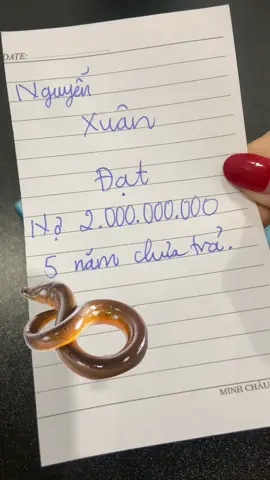 DATE:
Nguyễn
Xuân
Đạt
Nợ 2.000.000.000
5 năm chưa trả.
MINH CHÂU